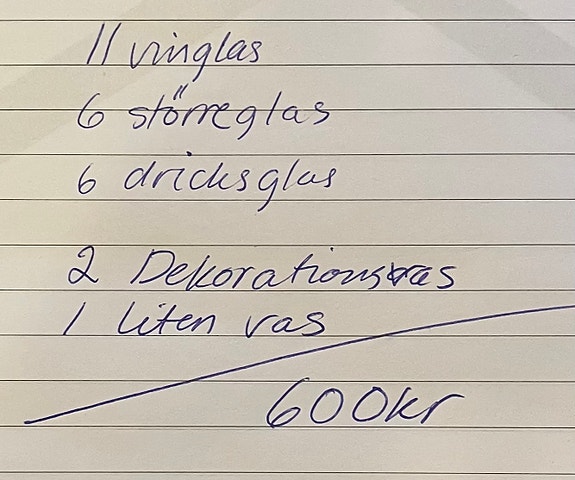 11 vinglas
6 större glas
6 dricksglas
2 Dekorationsvas
1 liten vas
600kr